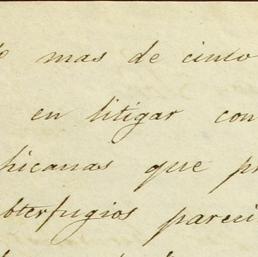 mas de cinco
en litigar con
hicanas que p
bterfugios pareci